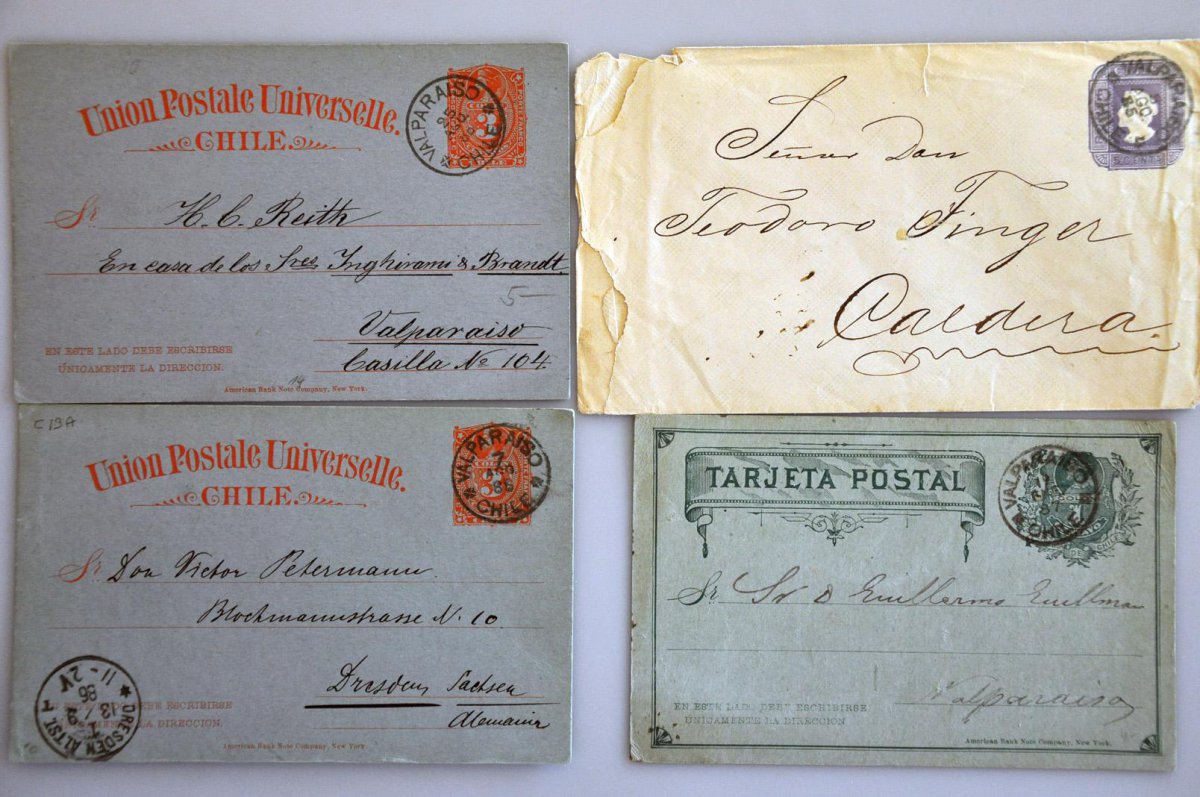 Union Postale Universelle.
CHILE.
VALPARAISO
CHILE
Sr H. C. Reith
En casa de los Sres Inghirami & Brandt
5-
Valparaiso
Casilla No 104.
EN ESTE LADO DEBE ESCRIBIRSE
ÚNICAMENTE LA DIRECCION.
14
American Bank Note Company, New York.
VALPARAISO
CHILE
5 CENTS
Señor Don
Teodoro Finger
Caldera.
C19A
Union Postale Universelle.
CHILE.
VALPARAISO
7
86
CHILE
Sr. Don Victor Petermann
Blochmannstrasse N. 10
Dresden Sachsen
Alemania
DRESDEN ALTST.
86
11-2V
EN ESTE LADO DEBE ESCRIBIRSE
ÚNICAMENTE LA DIRECCION.
American Bank Note Company, New York.
TARJETA POSTAL
VALPARAISO
CHILE
Sr Sr D Guillermo
Valparaiso
EN ESTE LADO DEBE ESCRIBIRSE
ÚNICAMENTE LA DIRECCION
American Bank Note Company, New York.